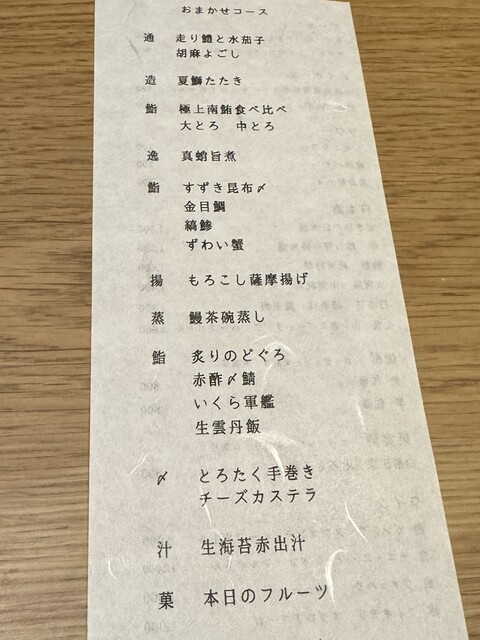 おまかせコース
通 走り鱧と水茄子
胡麻よごし
造 夏鰤たたき
鮨 極上南鮪食べ比べ
大とろ 中とろ
逸 真蛸旨煮
鮨 すずき昆布〆
金目鯛
縞鯵
ずわい蟹
揚 もろこし薩摩揚げ
蒸 鰻茶碗蒸し
鮨 炙りのどぐろ
赤酢〆鯖
いくら軍艦
生雲丹飯
〆 とろたく手巻き
チーズカステラ
汁 生海苔赤出汁
菓 本日のフルーツ